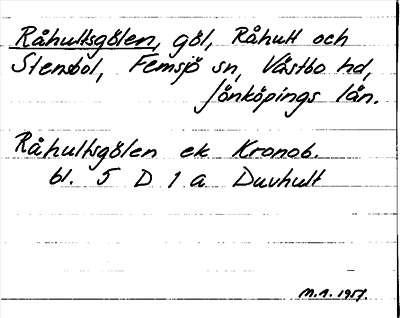 Råhultsgölen, göl, Råhult och
Stensbol, Femsjö sn, Västbo hd,
Jönköpings län.
Råhultsgölen ek Kronob.
bl. 5 D 1 a Duvhult
M.A. 1957.